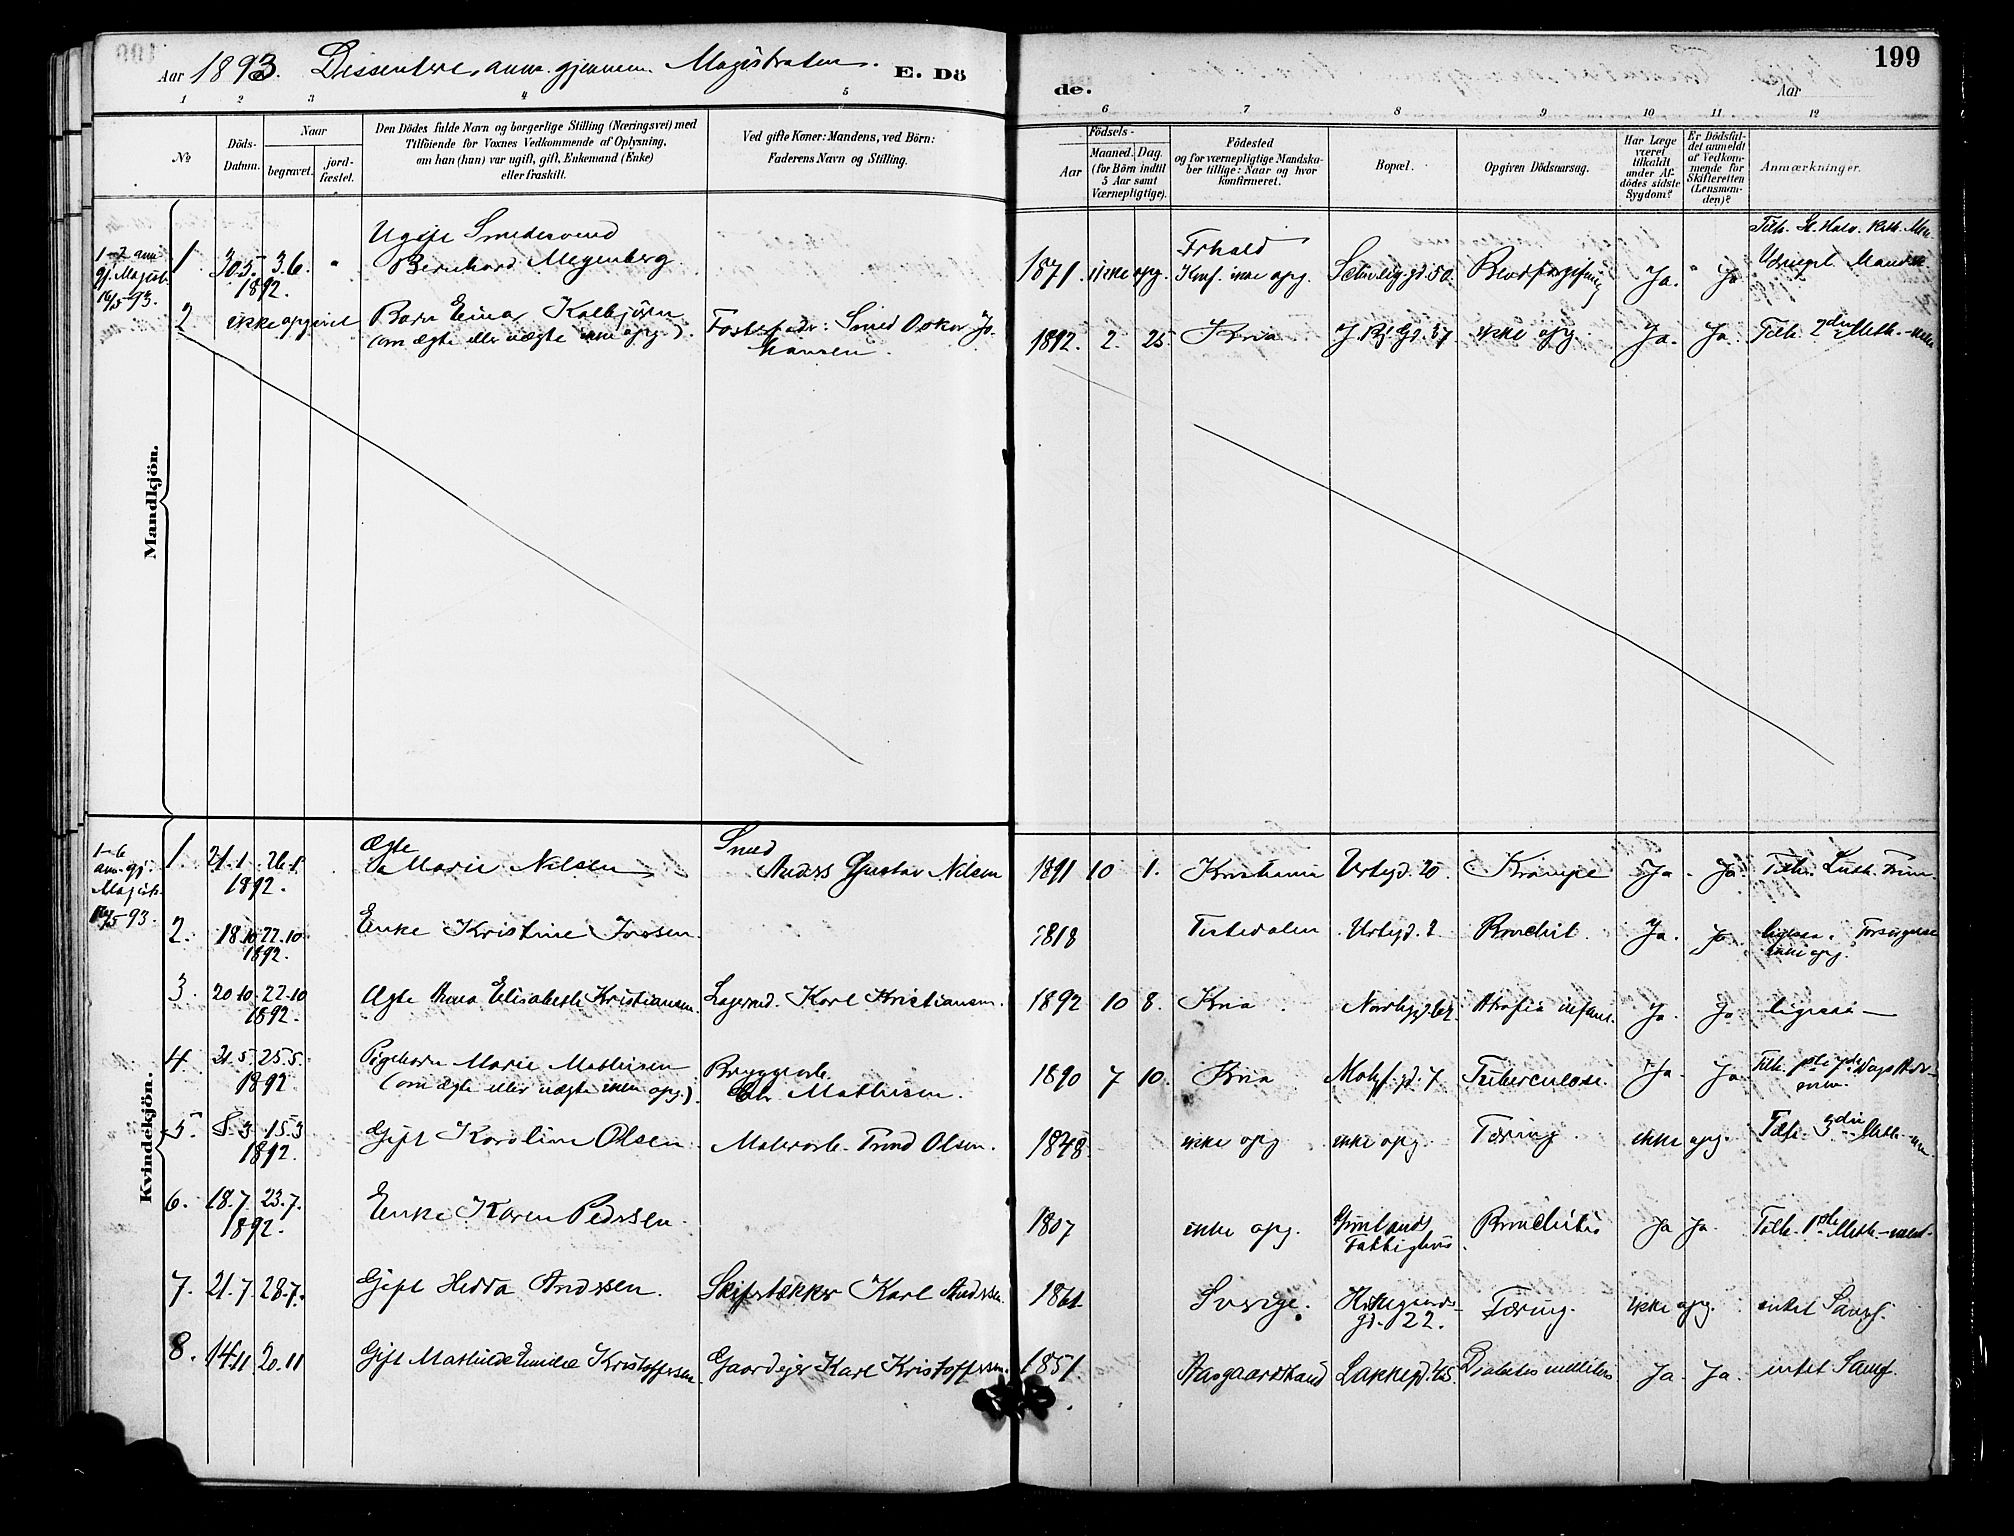 Aar 1893. Dissentere, anm. gjennem Magistraten. E. Dö
de. Aar 199
1 2 3 4 5 6 7 8 9 10 11 12
No
Döds-
Datum.
Naar
begravet.
jord-
fæstet.
Den Dödes fulde Navn og borgerlige Stilling (Næringsvei) med
Tilföiende for Voxnes Vedkommende af Oplysning,
om han (hun) var ugift, gift, Enkemand (Enke)
eller fraskilt.
Ved gifte Koner: Mandens, ved Börn:
Faderens Navn og Stilling.
Födsels-
Aar
Maaned. Dag
(for Börn indtil
5 Aar samt
Værnepligtige).
Födested
og for værnepligtige Mandska-
ber tillige: Naar og hvor
konfirmeret.
Bopæl.
Opgiven Dödsaarsag.
Har Læge
været
tilkaldt
under Af-
dödes sidste
Sygdom?
Er Dödsfal-
det anmeldt
af Vedkom-
mende for
Skifteretten
(Lensman-
den)?
Anmærkninger.
Mandkjön.
1-2 anm
gj. Magist.
16/5-93.
1 30.5. 3.6. "
1892.
Ugift Smedesvend
Bernhard Meyenberg
1871. ikke opg.
Frhald
Konf. ikke opg.
50. Blodforgiftning Ja. Ja
Tilh. St. Halv. Kath. Men
2 ikke opgivet Barn Einar Kolbjörn
(om ægte eller uægte ikke opg.)
Fosterfader: Smed Oskar Jo.
Hansen.
1892. 2. 25 Kria J. Bj. Gd. 37 ikke opg. Ja. Ja. Tilh. 2den Meth.-men
Kvindekjön.
1-6
anm. gj.
Magist.
16/5-93.
1. 21.1. 26.1.
1892.
Ægte
Marie Nilsen
Smed
Anders Gustav Nilsen
1891 10 1. Kristiania Urtegd. 20. Krampe Ja. Ja. Tilh. Luth. Frim.
2. 18.10 22.10
1892.
Enke Kristine Iversen
1818 Tistedalen Urtegd. 2 Bronchit. Ja. Ja.
ligesaa.
ikke opg.
3. 20.10. 22.10
1892.
Ægte Anna Elisabeth Kristiansen. Karl Kristiansen.
1892 10 8. Kria Norbygd. 62 Atrofia infant. Ja. Ja. ligesaa
4. 21.5. 25.5.
1892.
Pigebarn Marie Mathisen
(om ægte eller uægte ikke opg.)
Bryggearb.
Chr. Mathisen.
1890 7 10. Kria 7 Tuberculose. Ja. Ja. Tilh. 7de Dags Adv-
5. 8.3 15.3
1892.
Gift Karoline Olsen Malerarb. Olsen.
1848. ikke opg ikke opg. Tæring ikke opg. Tilh. 3die Meth.-men.
6. 18.7. 23.7.
1892.
Enke Karen Pedersen.
1807 ikke opg. Grönlands
Fattighus
Bronchitis Ja Ja. Tilh. 1ste Meth.-men.
7. 21.7. 28.7. Gift Hedda Andersen. Skifertækker Karl Andersen.
1861. Sverige.
gd. 22.
Tæring. ikke opg. intet Samf.
8. 14.11 20.11 Gift Mathilde Emilie Kristoffersen. Gaardejer Karl Kristoffersen.
1851 Aasgaardstrand Lakkegd. 65. Diabetes mellitus Ja. Ja. intet Samf.